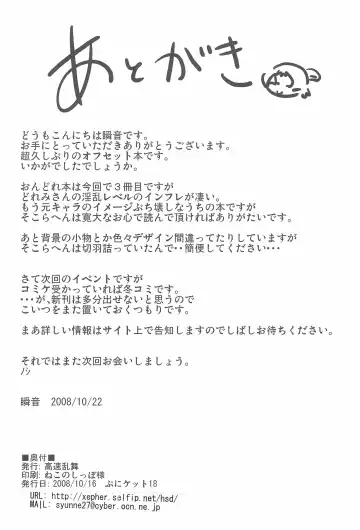 あとがき
どうもこんにちは瞬音です。
お手にとっていただきありがとうございます。
超久しぶりのオフセット本です。
いかがでしたでしょうか。
おんどれ本は今回で３冊目ですが
どれみさんの淫乱レベルのインフレが凄い。
もう元キャラのイメージぶち壊しなうちの本ですが
そこらへんは寛大なお心で読んで頂ければありがたいです。
あと背景の小物とか色々デザイン間違ってたりしていますが
そこらへんは切羽詰っていたんで・・簡便してください・・・
さて次回のイベントですが
コミケ受かっていれば冬コミです。
・・・が、新刊は多分出せないと思うので
こいつをまた置いておくつもりです。
まあ詳しい情報はサイト上で告知しますのでしばしお待ちください。
それではまた次回お会いしましょう。
ﾉｼ
瞬音　2008/10/22
■奥付■
発行: 高速乱舞
印刷: ねこのしっぽ様
発行日: 2008/10/16　ぷにケット18
URL: http://xepher.selfip.net/hsd/
MAIL: syunne27@cyber.ocn.ne.jp